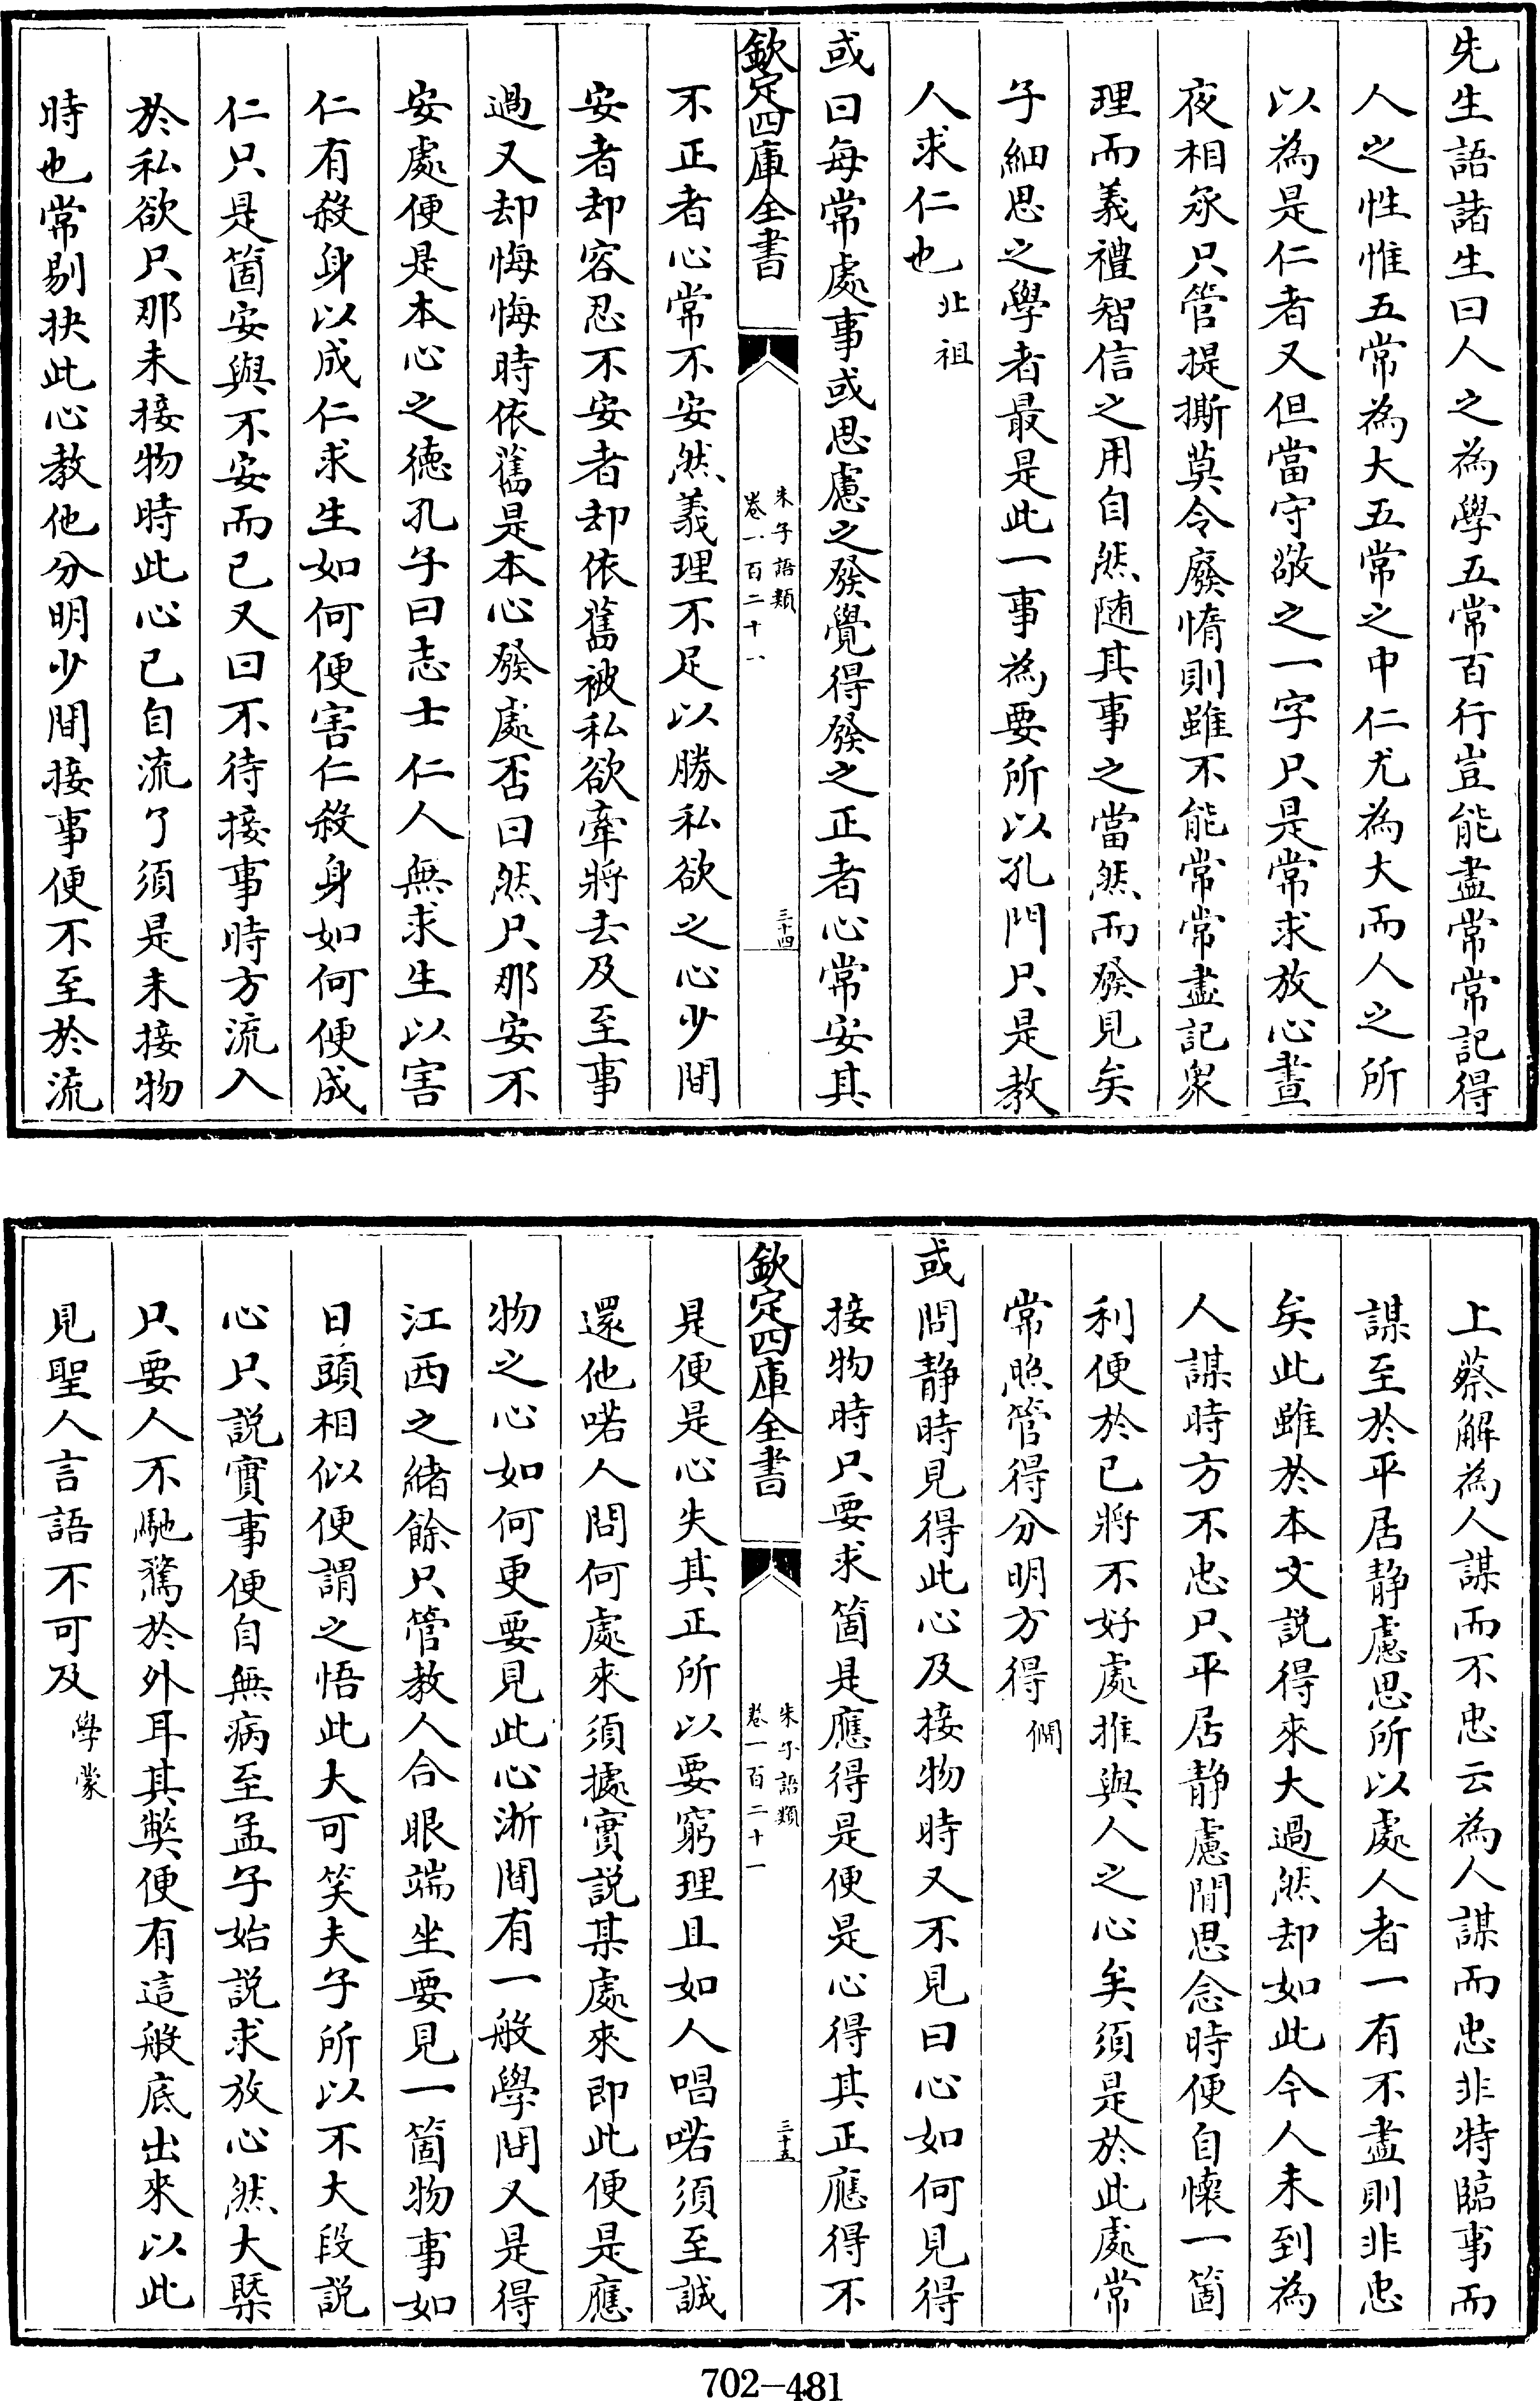 先生語諸生曰人之為學五常百行豈能盡常常記得
人之性惟五常為大五常之中仁尤為大而人之所
以為是仁者又但當守敬之一字只是常求放心晝
夜相承只管提撕莫令廢惰則雖不能常常盡記衆
理而義禮智信之用自然随其事之當然而發見矣
子細思之學者最是此一事為要所以孔門只是教
人求仁也 壯祖
或曰每常處事或思慮之發覺得發之正者心常安其
欽定四庫全書
朱子語類
卷一百二十一
三十四
不正者心常不安然義理不足以勝私欲之心少間
安者却容忍不安者却依舊被私欲牽將去及至事
過又却悔悔時依舊是本心發處否曰然只那安不
安處便是本心之德孔子曰志士仁人無求生以害
仁有殺身以成仁求生如何便害仁殺身如何便成
仁只是箇安與不安而已又曰不待接事時方流入
於私欲只那未接物時此心已自流了須是未接物
時也常剔抉此心教他分明少間接事便不至於流
上蔡解為人謀而不忠云為人謀而忠非特臨事而
謀至於平居静慮思所以處人者一有不盡則非忠
矣此雖於本文説得來大過然却如此今人未到為
人謀時方不忠只平居静慮閒思念時便自懷一箇
利便於已將不好處推與人之心矣須是於此處常
常照管得分明方得 僩
或問静時見得此心及接物時又不見曰心如何見得
接物時只要求箇是應得是便是心得其正應得不
欽定四庫全書
朱子語類
卷一百二十一
三十五
是便是心失其正所以要窮理且如人唱喏須至誠
還他喏人問何處來須據實説某處來即此便是應
物之心如何更要見此心浙間有一般學問又是得
江西之緒餘只管教人合眼端坐要見一箇物事如
日頭相似便謂之悟此大可笑夫子所以不大段説
心只説實事便自無病至孟子始説求放心然大槩
只要人不馳騖於外耳其獘便有這般底出來以此
見聖人言語不可及 學蒙
702-481